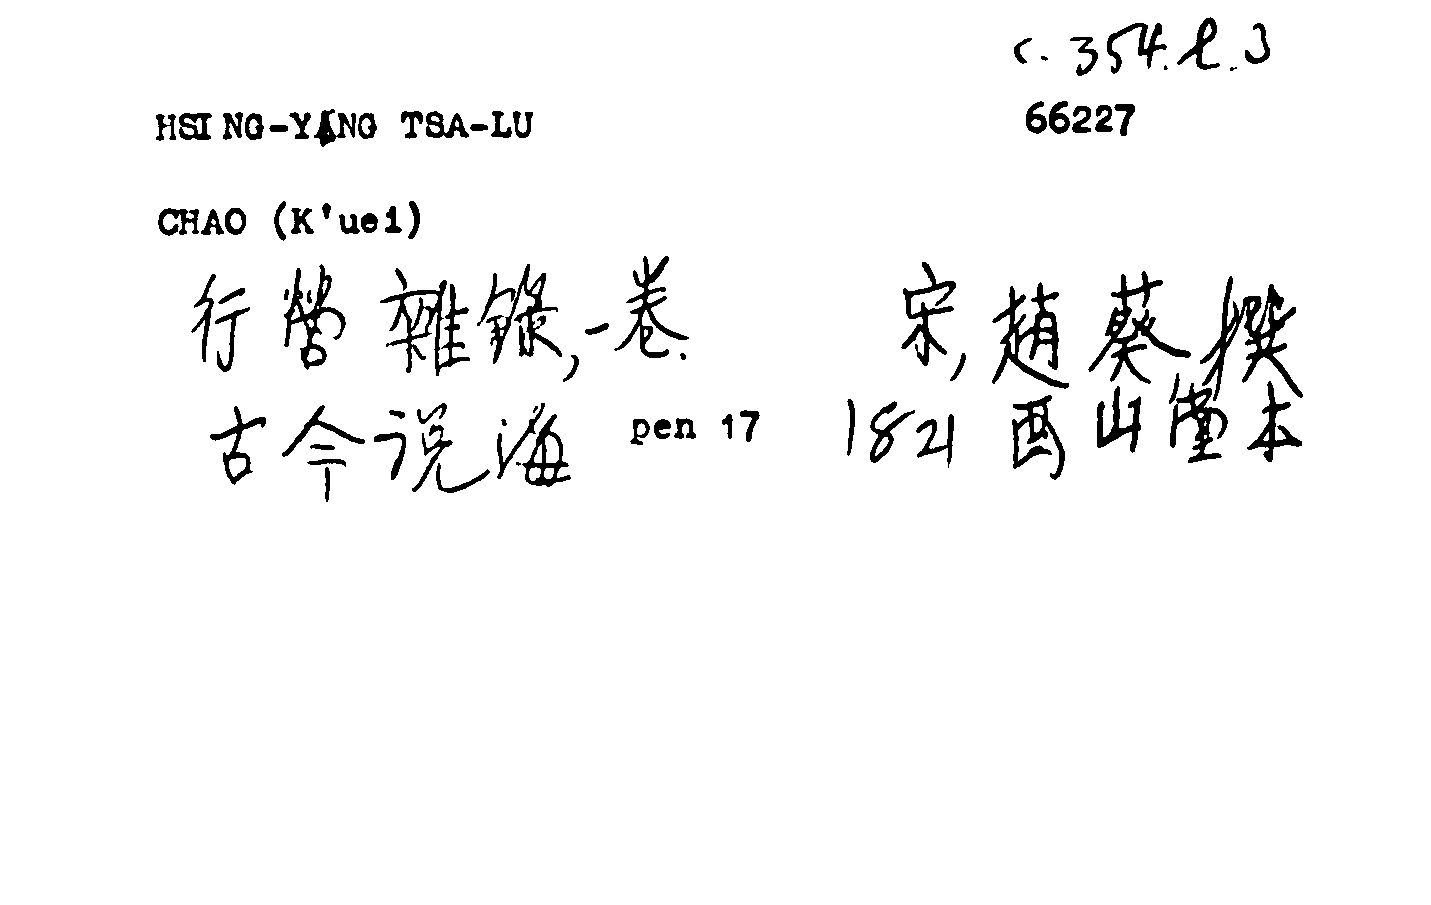 c. 354. l. 3
HSING-YANG TSA-LU 66227
CHAO (K'uei)
行營雜錄, 一卷. 宋, 趙葵撰
古今说海 pen 17 1821 酉山堂本